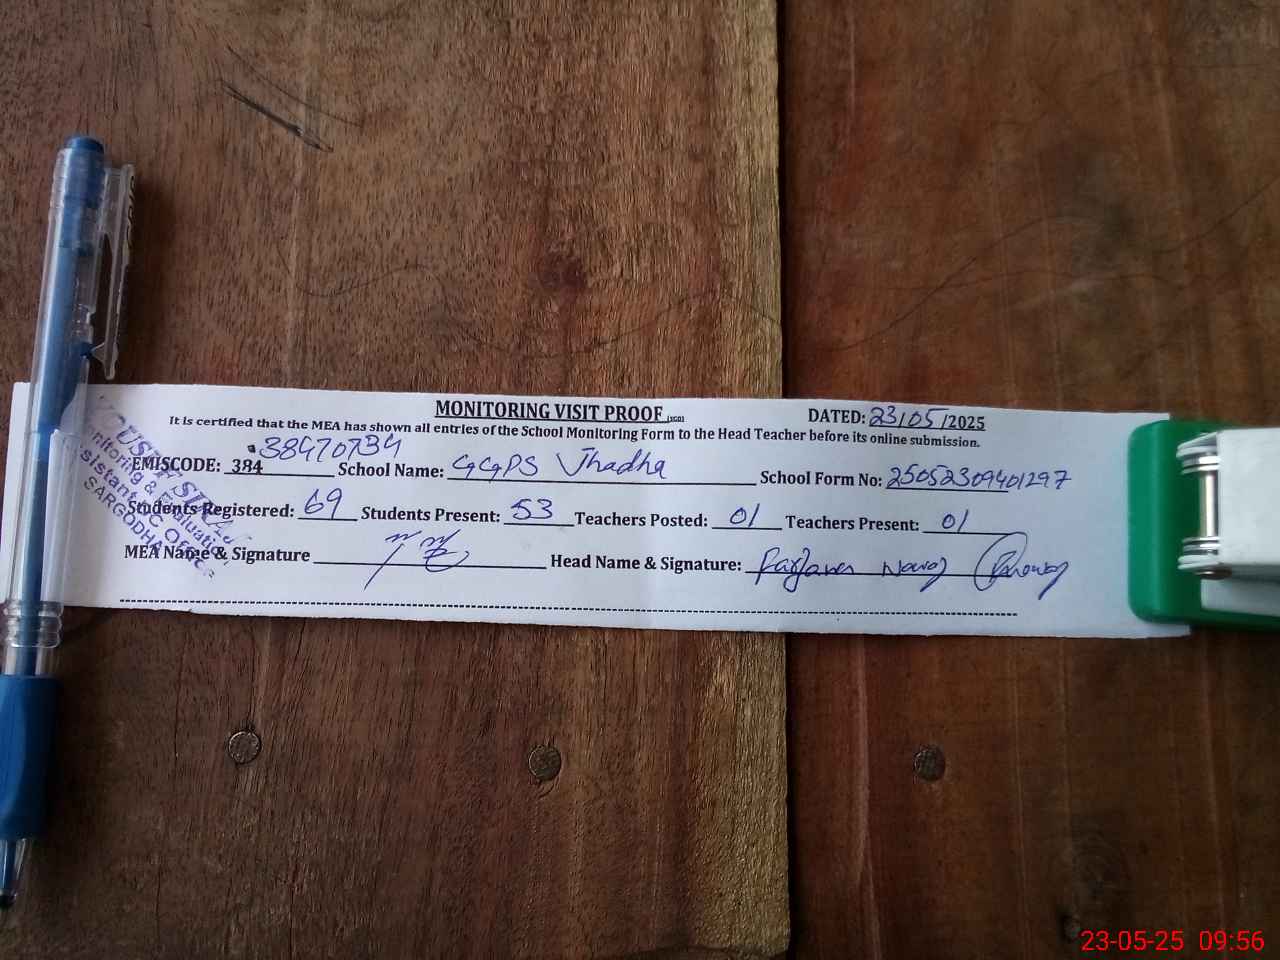 MONITORING VISIT PROOF (SGD) DATED: 23/05/2025
It is certified that the MEA has shown all entries of the School Monitoring Form to the Head Teacher before its online submission.
38470734
EMISCODE: 384 School Name: GGPS Jhadha School Form No: 25052309401297
Students Registered: 69 Students Present: 53 Teachers Posted: 01 Teachers Present: 01
MEA Name & Signature Head Name & Signature:
YOUSAF
Monitoring & Evaluation
Assistant DC Office
SARGODHA
23-05-25 09:56